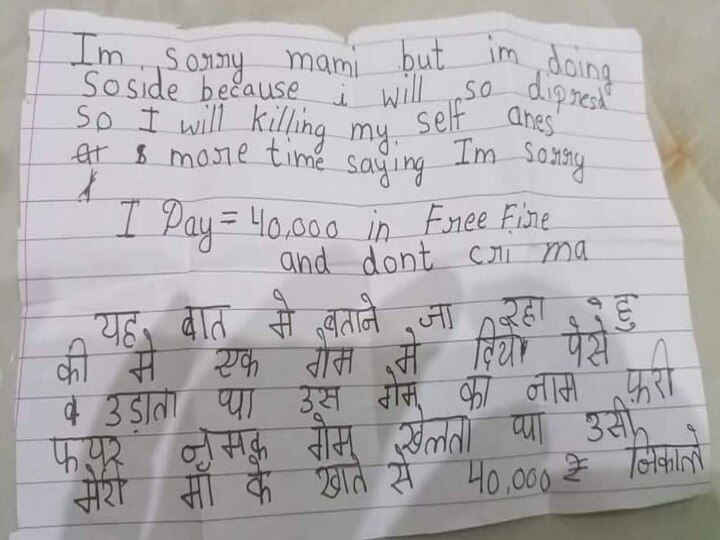 Im sorry mami but im doing
Soside because i will so dipresd
so I will killing my self ones
more time saying Im sorry
I Pay = 40,000 in Free Fire
and dont cri ma
यह बात मे बताने जा रहा हु
की मे एक गेम मे दिया पेसे
उड़ाता था उस गेम का नाम फ़री
फयर नमक गेम खेलता था उसी
मेरी माँ के खाते से 40,000 ₹ निकाले